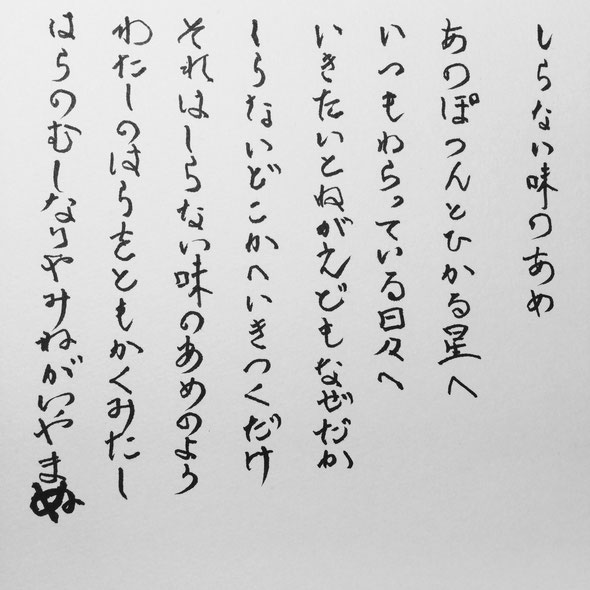 しらない味のあめ
あのぽつんとひかる星へ
いつもねらっている日々へ
いきたいとねがえどもなぜだか
しらないどこかへいきつくだけ
それはしらない味のあめのよう
わたしのはらをともかくみたし
はらのむしなりやみねがいやまぬ